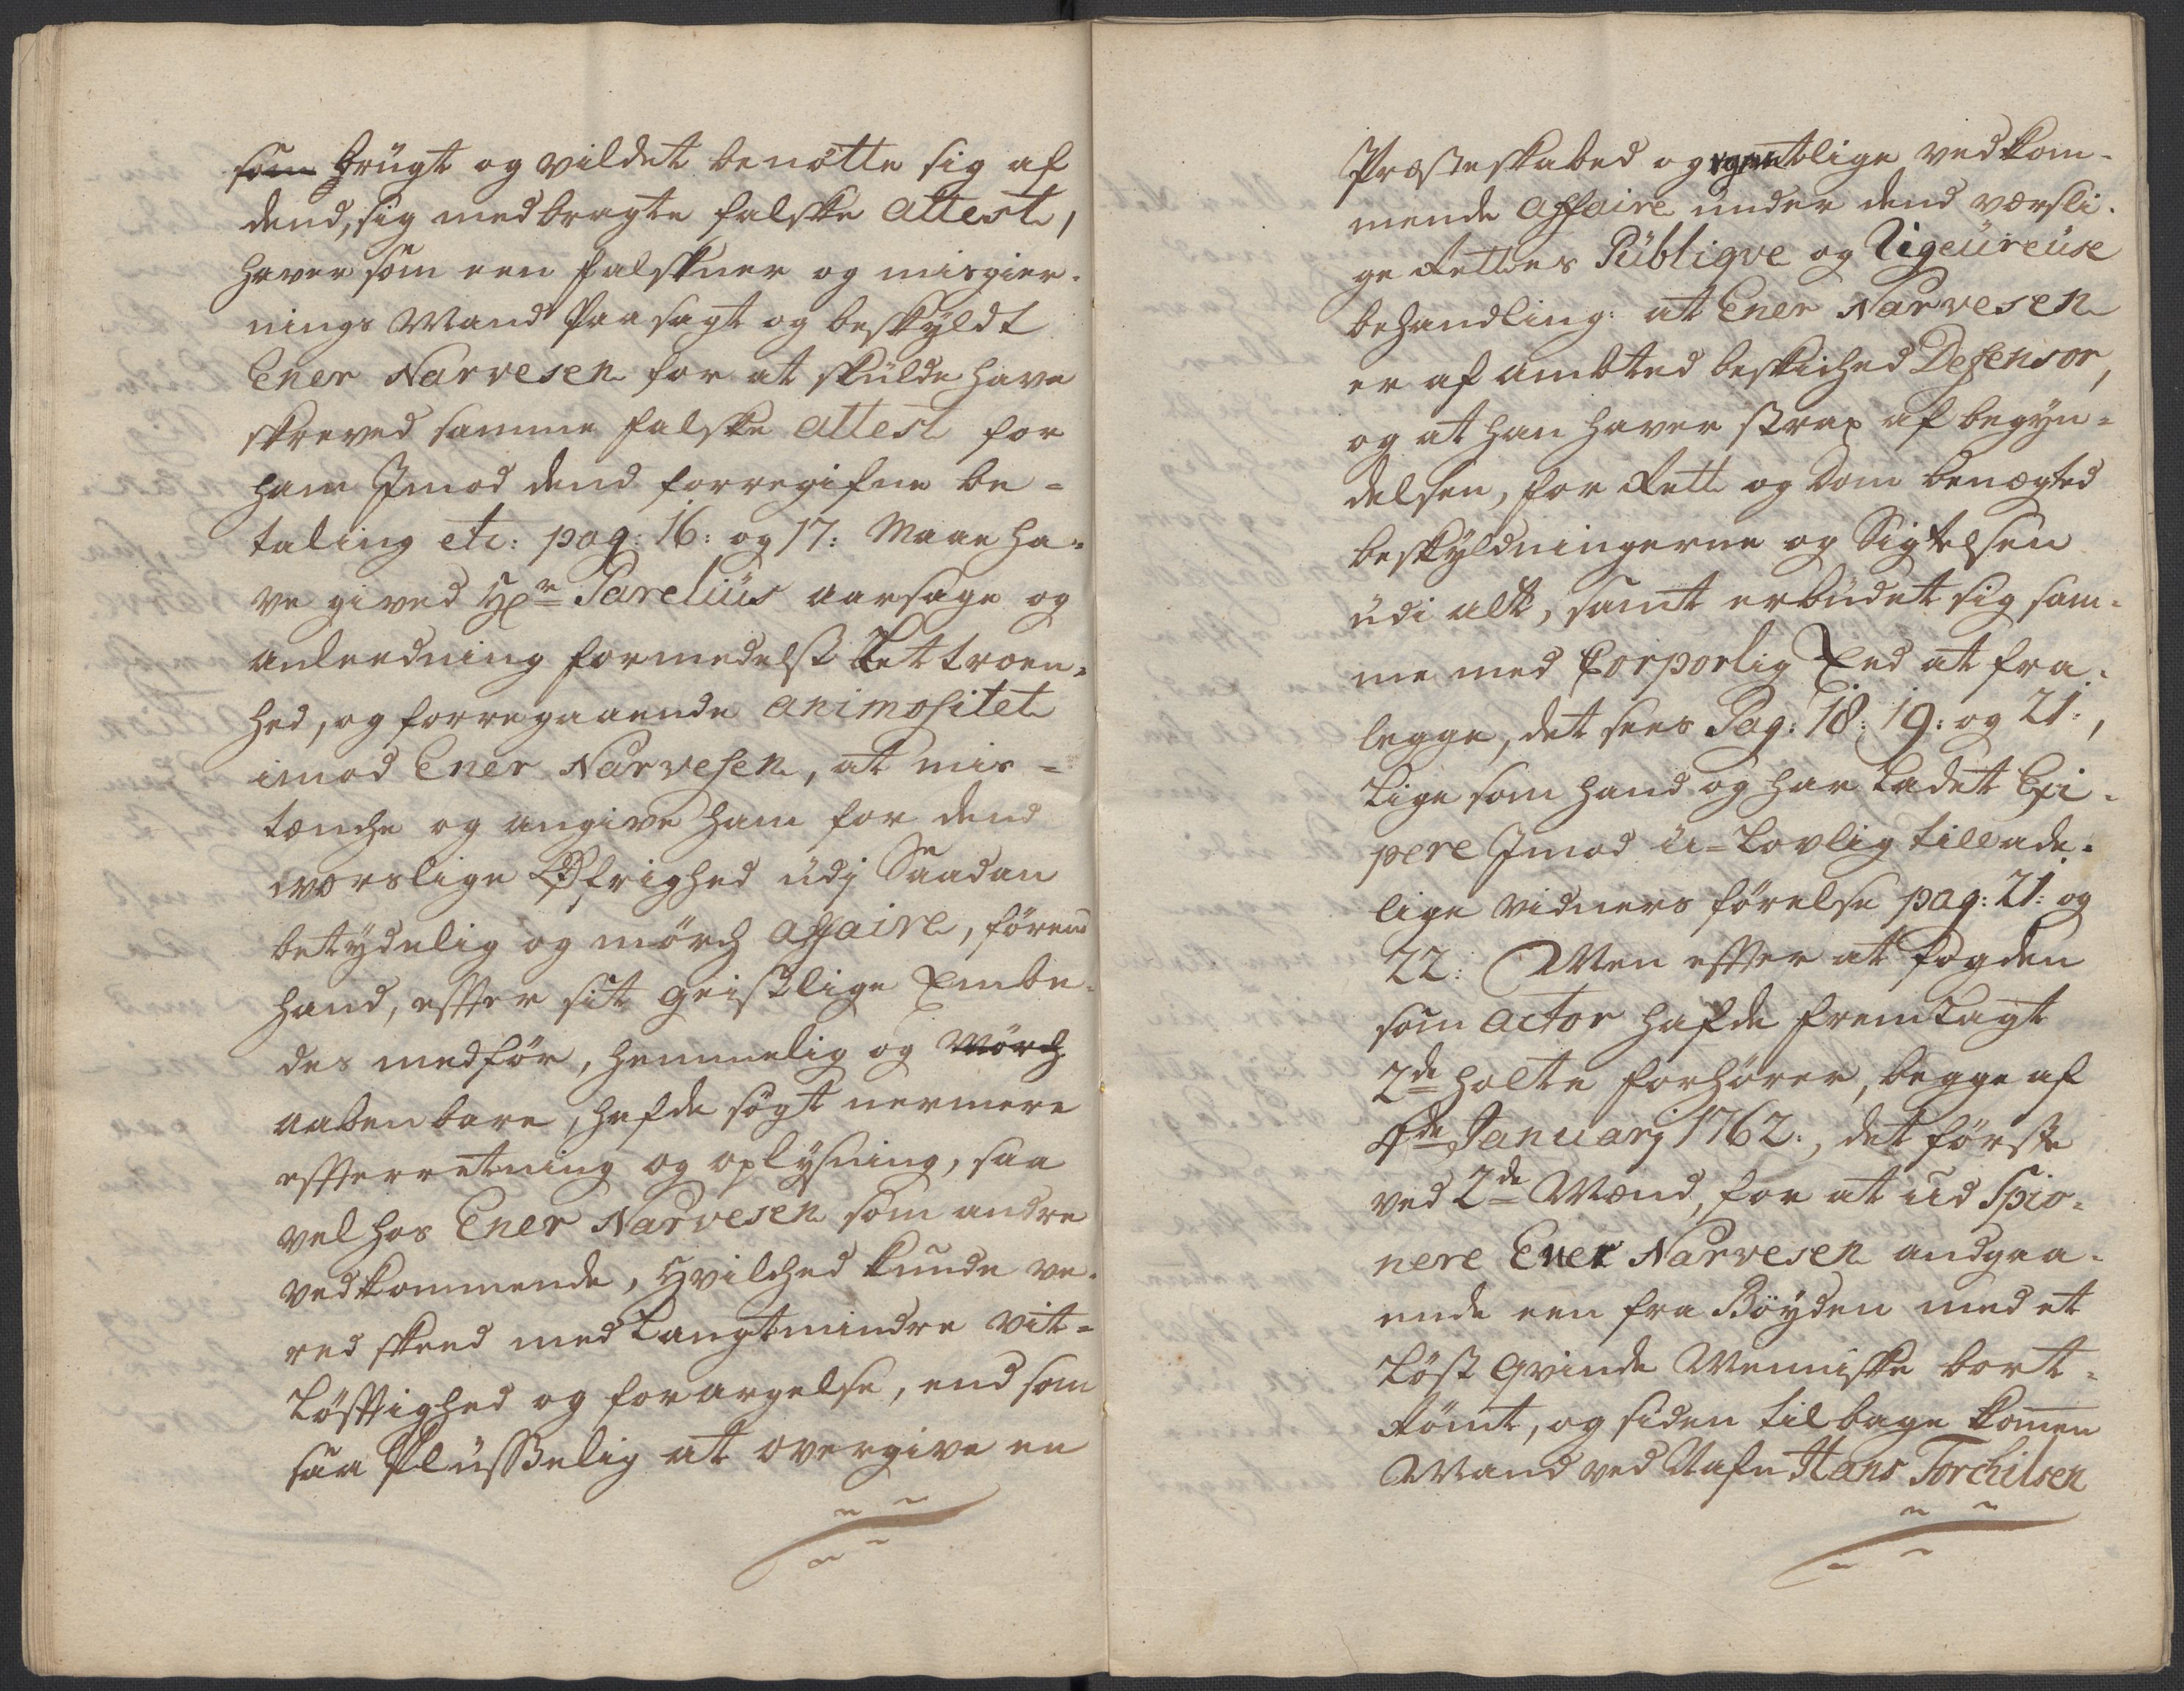 som brügt og vildet benötte sig af
dend, sig medbragte falske attest,
haver som een falskner og misgier-
nings Mand Paasagt og beskÿldt
Ener Narvesen for at skülde have
skreved samme falske attest for
ham Jmod dend forregifne be-
taling etc: pag: 16: og 17: Maae ha-
ve gived Hr Parelius aarsage og
anleedning formedelst Lettroen-
hed, og forregaaende animositet
imod Ener Narvesen, at mis-
tænche og angive ham for dend
værslige Øfrighed üdj Saadan
betÿdelig og mörch affaire, förend
hand, effter sit geistlige Embe-
des medför, hemmelig og Mörch
aabenbare, hafde sögt nermere
effterretning og oplÿsning, saa
vel hos Ener Narvesen som andre
vedkommende, hvilched kunde ve-
red skeed med Langt mindre vit-
Löfftighed og forargelse, end som
saa Plüsselig at overgive en
Præsteskabed og egentlige vedkom-
mende affaire under dend værsli-
ge Rettes Püblique og Rigeüreüse
behandling: at Ener Narvesen
er af ambted beskiched Defensor,
og at han haver strax af begÿn-
delsen, for Rett og Dom benægted
beskÿldningerne og Sigtelsen
üdi alt, samt erbüdet sig sam-
me med Corporlig Eed at fra-
legge, det sees Pag: 18: 19: og 21:,
Lige som hand og har Ladet Exi-
pere Jmod ü-Lovlig tillade-
lige vidners förelse pag: 21: og
22: Men effter at fogden
som actor hafde fremlagt
2de holte forhörer, begge af
4de Januarj 1762:, det förste
ved 2de Mænd, for at üd Spio-
nere Ener Narvesen andgaa-
ende een fra Böÿden med et
Löst Qvinde Menniske bort-
Römt, og siden tilbage komen
Mand ved Nafn Hans Torchilsen